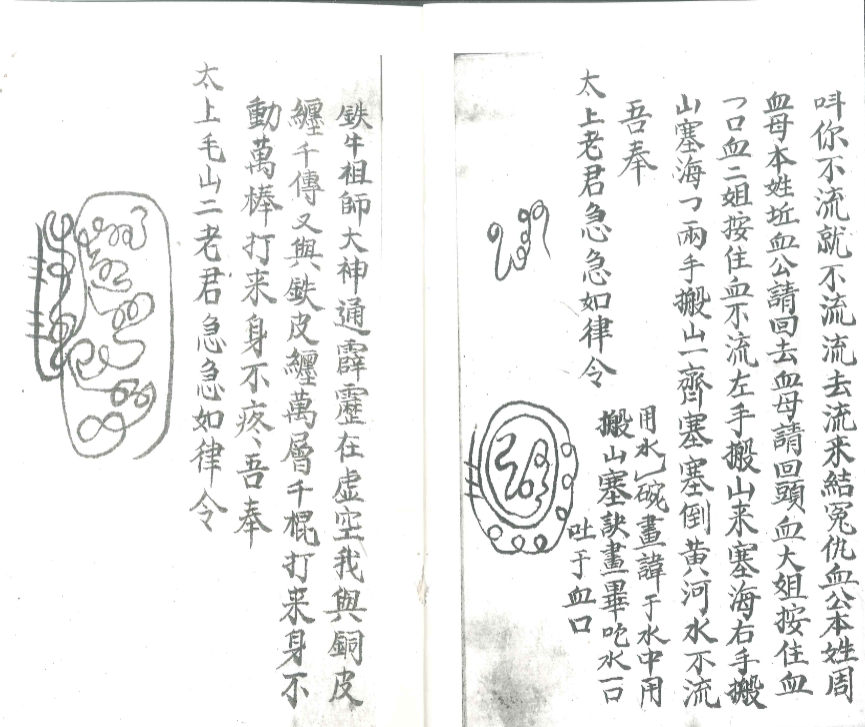 呌你不流就不流流去流来結冤仇血公本姓周
血母本姓坵血公請回去血母請回頭血大姐按住血
乛口血二姐按住血不流左手搬山来塞海右手搬
山塞海乛兩手搬山一齊塞塞倒黃河水不流
吾奉
太上老君急急如律令
用水乚碗畫諱于水中用
搬山塞訣畫畢吃水一口
吐于血口
鉄牛祖師大神通霹靂在虛空我與銅皮
纏千傳又與鉄皮纏萬層千棍打来身不
動萬棒打来身不疼、吾奉
太上毛山二老君急急如律令